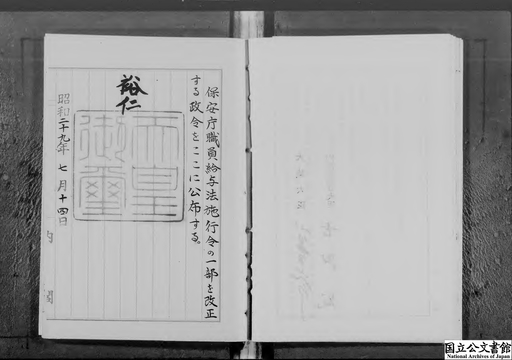 保安庁職員給与法施行令の一部を改正
する政令をここに公布する。
裕仁
天皇
御璽
昭和二十九年七月十四日
内閣
国立公文書館
National Archives of Japan